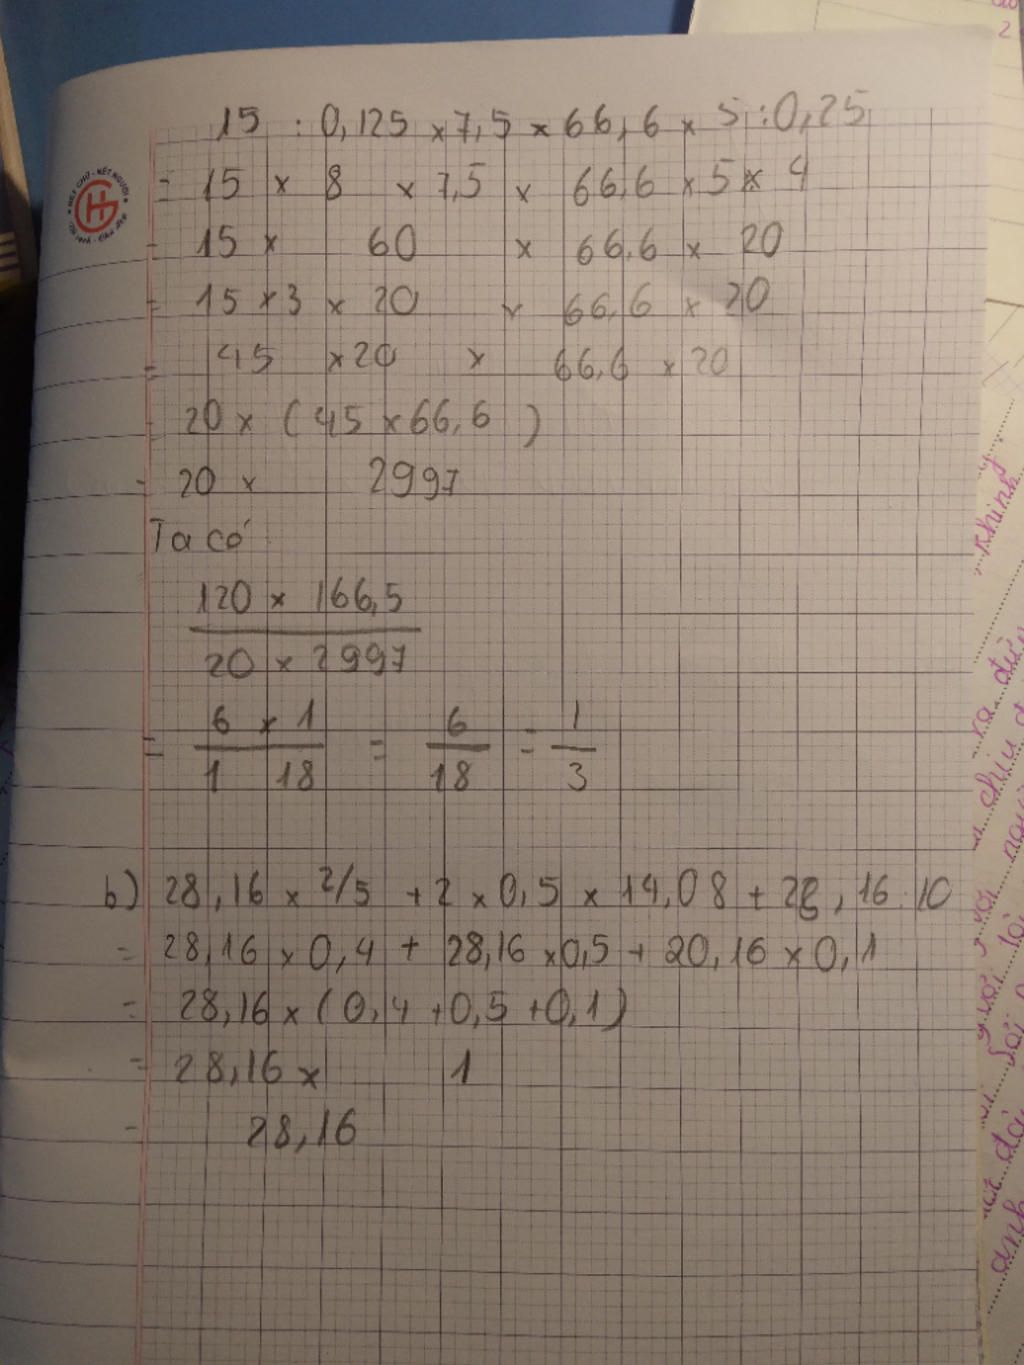 15 : 0,125 x 7,5 x 66,6 x 5 : 0,25
= 15 x 8 x 7,5 x 66,6 x 5 x 4
= 15 x 60 x 66,6 x 20
= 15 x 3 x 20 x 66,6 x 20
= 45 x 20 x 66,6 x 20
= 20 x (45 x 66,6)
= 20 x 2997
Ta có
120 x 166,5
20 x 2997
= 6 x 1 / 1 18 = 6/18 = 1/3
b) 28,16 x 2/5 + 2 x 0,5 x 14,08 + 28,16 : 10
= 28,16 x 0,4 + 28,16 x 0,5 + 20,16 x 0,1
= 28,16 x (0,4 + 0,5 + 0,1)
= 28,16 x 1
= 28,16
NÉT CHỮ - NẾT NGƯỜI